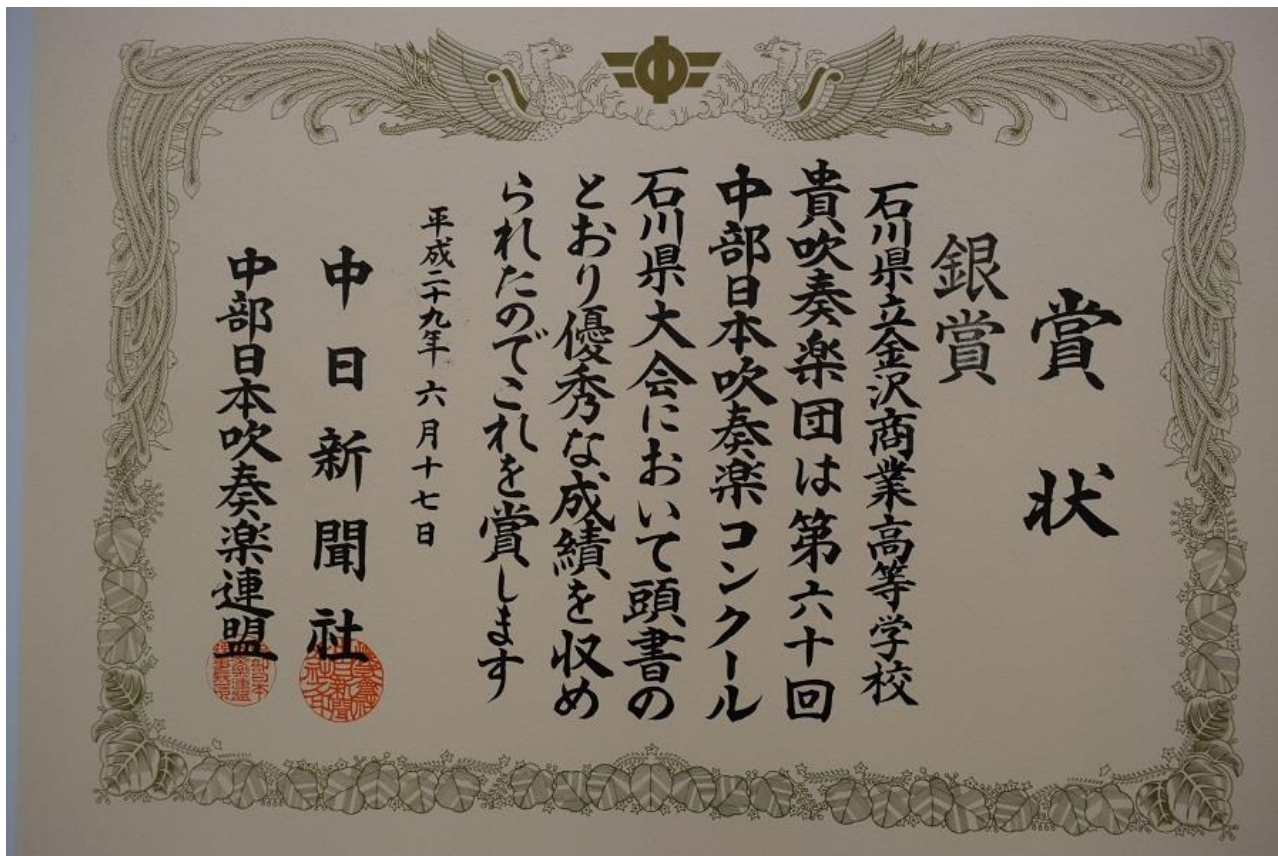 賞状
銀賞
石川県立金沢商業高等学校
貴吹奏楽団は第六十回
中部日本吹奏楽コンクール
石川県大会において頭書の
とおり優秀な成績を収め
られたのでこれを賞します
平成二十九年六月十七日
中日新聞社
中部日本吹奏楽連盟